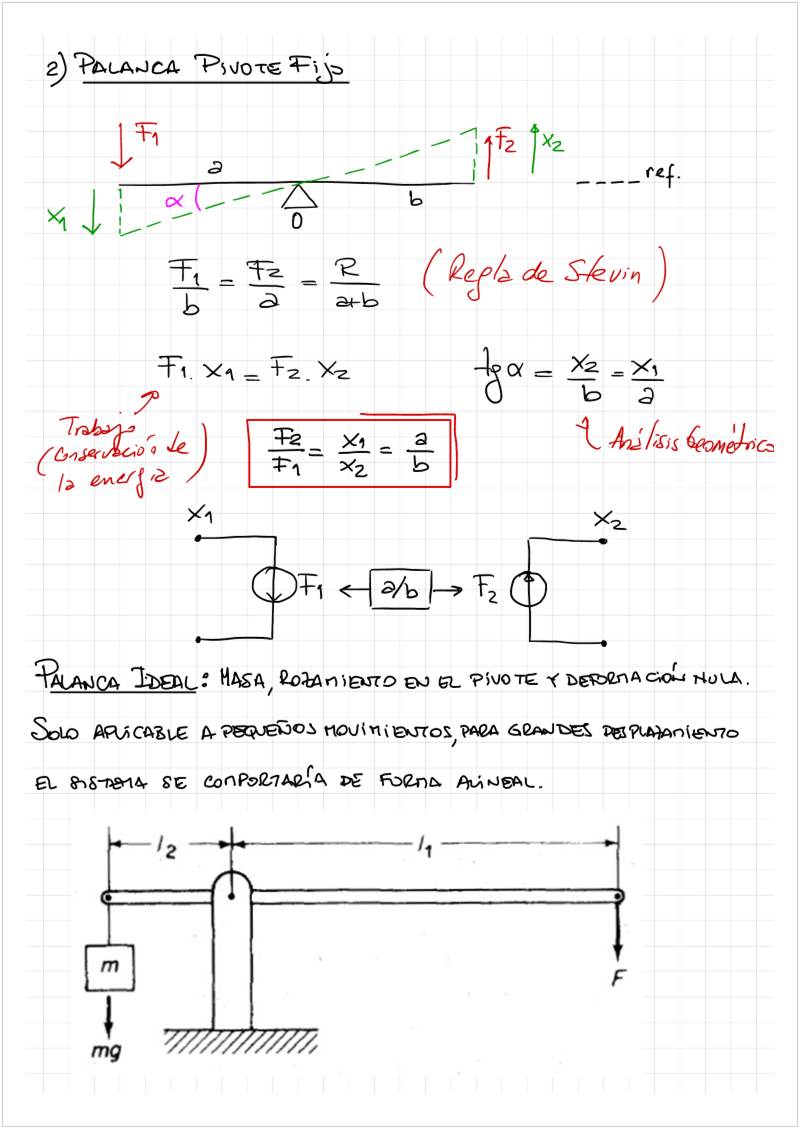 2) PALANCA PIVOTE Fijo
F1
a
F2
x2
ref.
x1
α
b
O
F1/b = F2/a = R/a+b (Regla de Stevin)
F1 . x1 = F2 . x2
tg α = x2/b = x1/a
Trabajo
(Conservación de
la energía)
F2/F1 = x1/x2 = a/b
Análisis Geométrico
x1
x2
F1 ← a/b → F2
PALANCA IDEAL: MASA, ROZAMIENTO EN EL PIVOTE Y DEFORMACIÓN NULA.
SOLO APLICABLE A PEQUEÑOS MOVIMIENTOS, PARA GRANDES DESPLAZAMIENTO
EL SISTEMA SE COMPORTARÍA DE FORMA ALINEAL.
l2
l1
m
F
mg